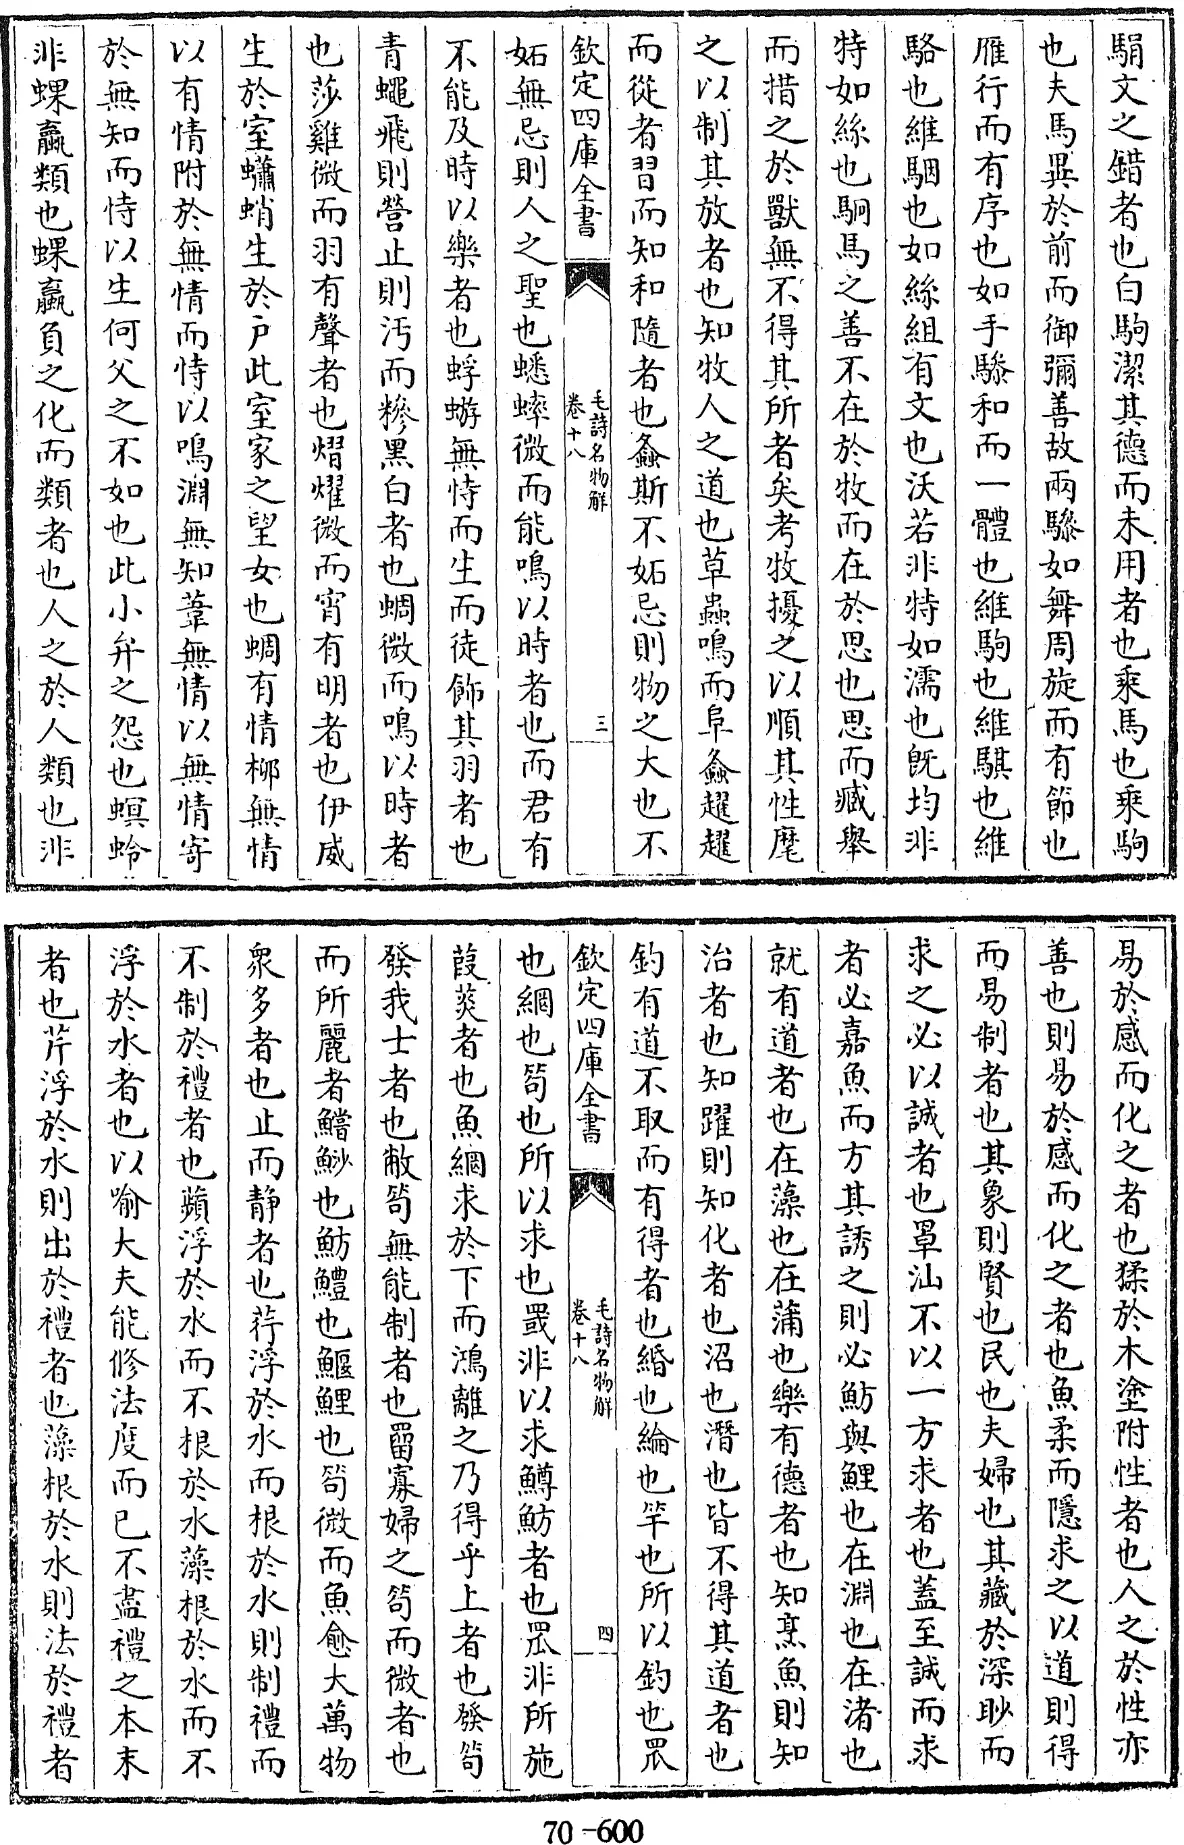 騆文之錯者也白駒潔其德而未用者也乘馬也乘駒
也夫馬異於前而御彌善故兩驂如舞周旋而有節也
雁行而有序也如手驂和而一體也維駒也維騏也維
駱也維駰也如絲組有文也沃若非特如濡也旣均非
特如絲也駉馬之善不在於牧而在於思也思而臧舉
而措之於獸無不得其所者矣考牧擾之以順其性麾
之以制其放者也知牧人之道也草蟲鳴而阜螽趯趯
而從者習而知和隨者也螽斯不妬忌則物之大也不
欽定四庫全書
毛詩名物解
卷十八
三
妬無忌則人之聖也蟋蟀微而能鳴以時者也而君有
不能及時以樂者也蜉蝣無恃而生而徒飾其羽者也
青蠅飛則營止則汚而糝黑白者也蜩微而鳴以時者
也莎雞微而羽有聲者也熠燿微而宵有明者也伊威
生於室蠨蛸生於戶此室家之望女也蜩有情柳無情
以有情附於無情而恃以鳴淵無知葦無情以無情寄
於無知而恃以生何父之不如也此小弁之怨也螟蛉
非蜾蠃類也蜾蠃負之化而類者也人之於人類也非
易於感而化之者也猱於木塗附性者也人之於性亦
善也則易於感而化之者也魚柔而隱求之以道則得
而易制者也其象則賢也民也夫婦也其藏於深眇而
求之必以誠者也罩汕不以一方求者也蓋至誠而求
者必嘉魚而方其誘之則必魴與鯉也在淵也在渚也
就有道者也在藻也在蒲也樂有德者也知烹魚則知
治者也知躍則知化者也沼也潛也皆不得其道者也
釣有道不取而有得者也緡也綸也竿也所以釣也罛
欽定四庫全書
毛詩名物解
卷十八
四
也網也笱也所以求也罭非以求鱒魴者也罛非所施
葭菼者也魚網求於下而鴻離之乃得乎上者也發笱
發我士者也敝笱無能制者也罶寡婦之笱而微者也
而所麗者鱨鯊也魴鱧也鰋鯉也笱微而魚愈大萬物
衆多者也止而靜者也荇浮於水而根於水則制禮而
不制於禮者也蘋浮於水而不根於水藻根於水而不
浮於水者也以喻大夫能修法度而已不盡禮之本末
者也芹浮於水則出於禮者也藻根於水則法於禮者
70-600